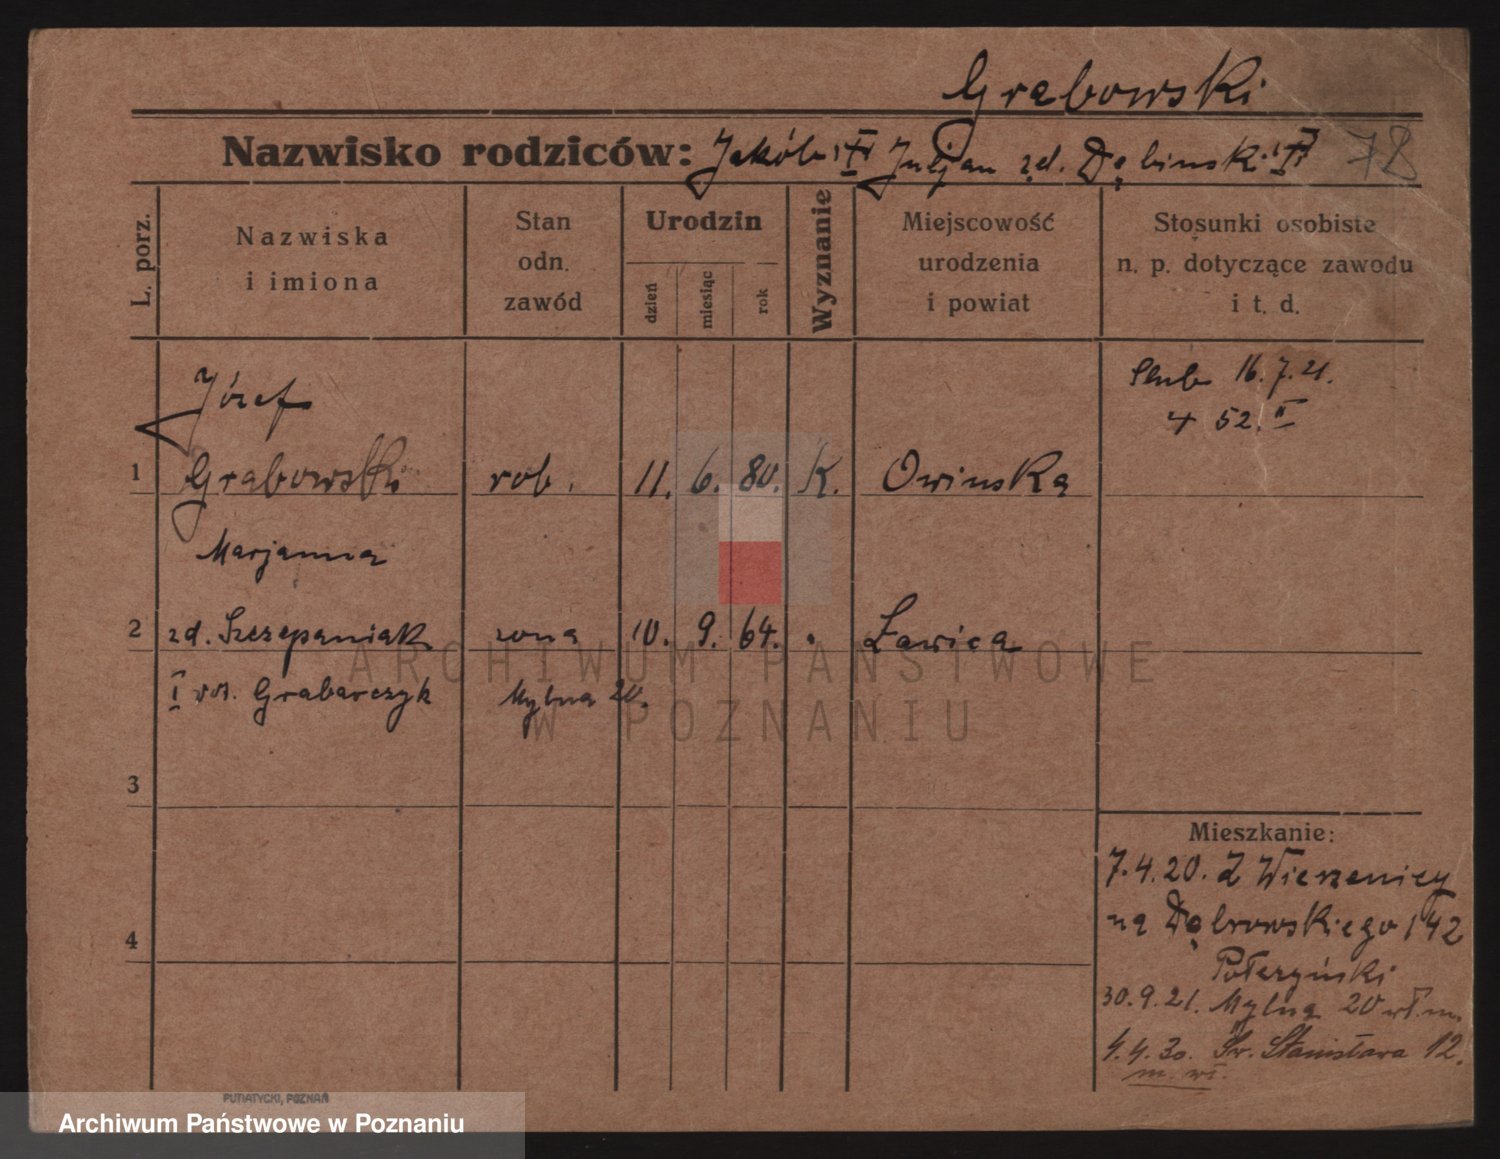 Grabowski
Nazwisko rodziców: Jakób Juljan zd. Dębinski 78
L. porz.
Nazwiska
i imiona
Stan
odn.
zawód
Urodzin
dzień
miesiąc
rok
Wyznanie
Miejscowość
urodzenia
i powiat
Stosunki osobiste
n. p. dotyczące zawodu
i t. d.
Józef
Ślub 16.7.21.
52. II
1 Grabowski rob. 11. 6. 80. K. Owinska
Marjanna
2 zd. Szczepaniak żona 10. 9. 64. Ławica
I Grabarczyk Mylna 20.
3
4
Mieszkanie:
7.4.20. Z Wierzenicy
na Dąbrowskiego 142
30.9.21. Mylna 20 wł. m.
4.4.30. Św. Stanisława 12.
m. wł.
PUTIATYCKI, POZNAŃ
ARCHIWUM PAŃSTWOWE
W POZNANIU
Archiwum Państwowe w Poznaniu